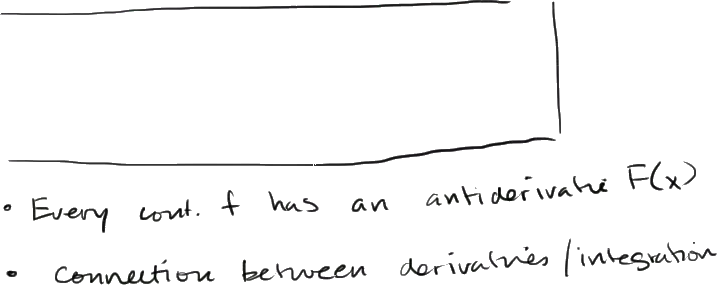 • Every cont. f has an antiderivative F(x)
• connection between derivatives/integration